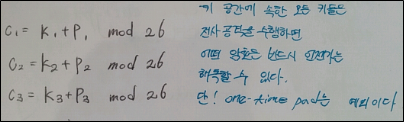 C₁ = K₁+P₁ mod 26
C₂ = K₂+P₂ mod 26
C₃ = K₃+P₃ mod 26
키 공간에 속한 모든 키들은
전사 공격을 수행하면
어떤 암호든 반드시 언젠가는
해독할 수 있다.
단! one-time pad는 예외이다